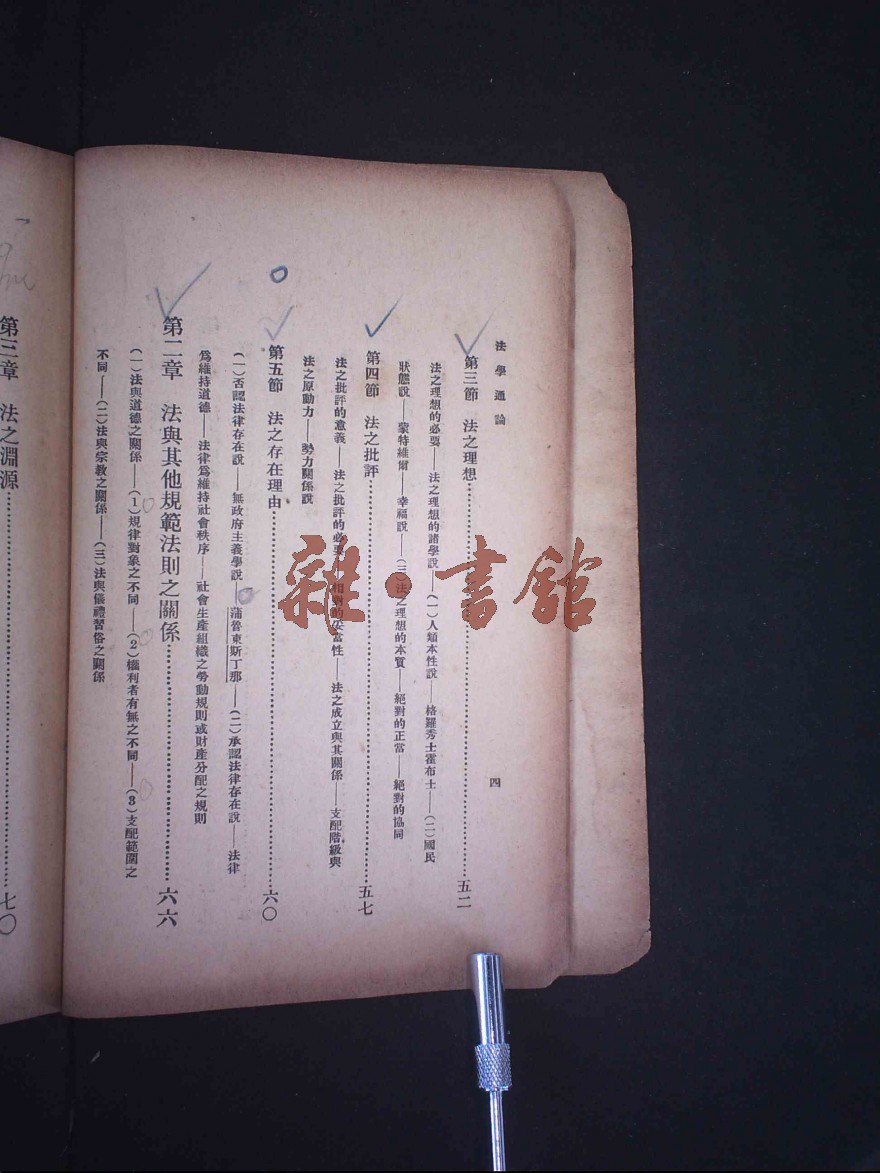 法學通論
四
第三節 法之理想……五二
法之理想的必要——法之理想的諸學說——(一)人類本性說——格羅秀士霍布士——(二)國民
狀態說——蒙特維爾——幸福說——(三)法之理想的本質——絕對的正當——絕對的協同
第四節 法之批評……五七
法之批評的意義——法之批評的必要——相對的妥當性——法之成立與其關係——支配階級與
法之原動力——勢力關係說
第五節 法之存在理由……六〇
(一)否認法律存在說——無政府主義學說——蒲魯東斯丁那——(二)承認法律存在說——法律
爲維持道德——法律爲維持社會秩序——社會生產組織之勞動規則或財產分配之規則
第二章 法與其他規範法則之關係……六六
(一)法與道德之關係——(1)規律對象之不同——(2)權利者有無之不同——(3)支配範圍之
不同——(二)法與宗教之關係——(三)法與儀禮習俗之關係
第三章 法之淵源……七〇
雜·書館